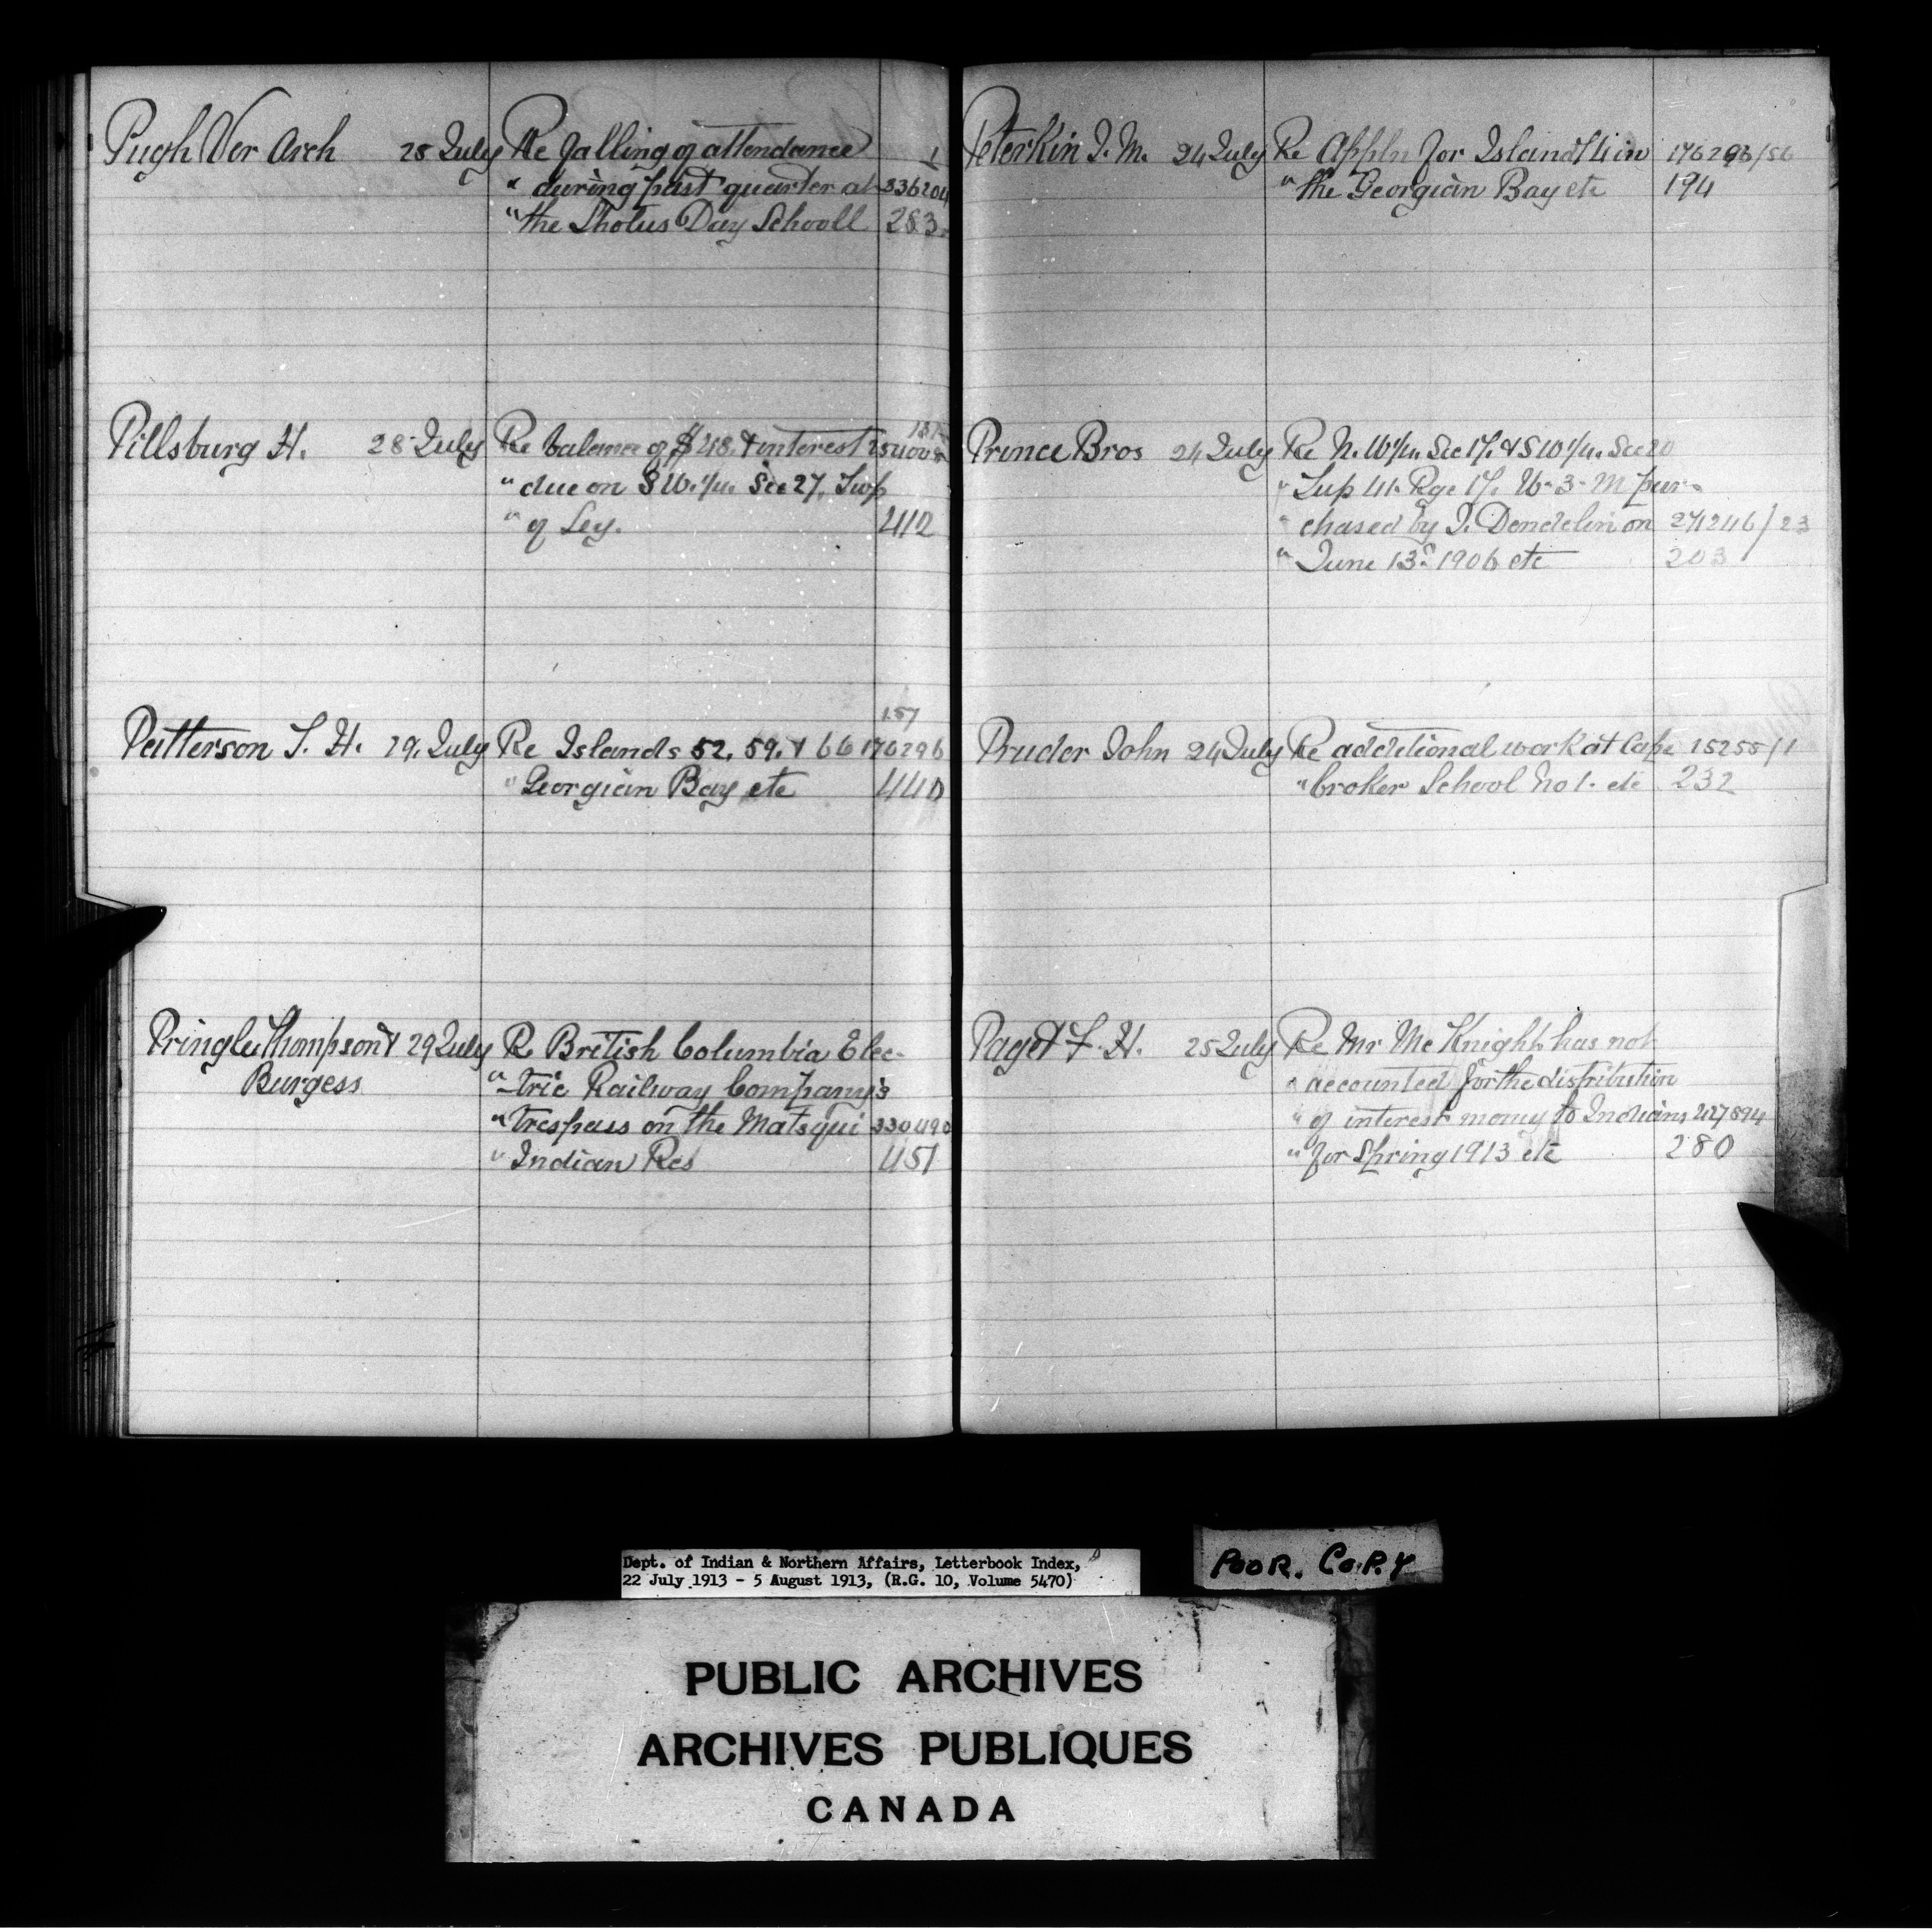 Pugh Ver Arch 25 July Re falling of attendance 1
" during past quarter at 336204
" the Shotus Day Schooll 283.
Pillsburg H. 28 July Re balance of $48. & interest
" due on S W. 1/4. Sec 27, Twp
" of Ley. 412
157
Patterson T. H. 29. July Re Islands 52, 59. & 66 176296
" Georgian Bay etc 440
Pringle Thompson & 29 July Re British Columbia Elec-
Burgess " tric Railway Company's
" trespass on the Matsqui 330490
" Indian Res 451
Peterkin J. M. 24 July Re Appln for Island 74 in 176296/56
" the Georgian Bay etc 194
Prince Bros 24 July Re N. W 1/4. Sec 17. & S W 1/4. Sec 20
" Tup 41. Rge 17. W-3-M pur-
" chased by J. Dendelin on 271246/23
" June 13th 1906 etc 203
Pruder John 24 July Re additional work at Cape 15255/1
" Croker School No 1. etc 232
Paget F. H. 25 July Re Mr Mc Knight has not
" accounted for the distribution
" of interest money to Indians 427894
" for Spring 1913 etc 280
Dept. of Indian & Northern Affairs, Letterbook Index,
22 July 1913 - 5 August 1913, (R.G. 10, Volume 5470)
POOR. COPY
PUBLIC ARCHIVES
ARCHIVES PUBLIQUES
CANADA